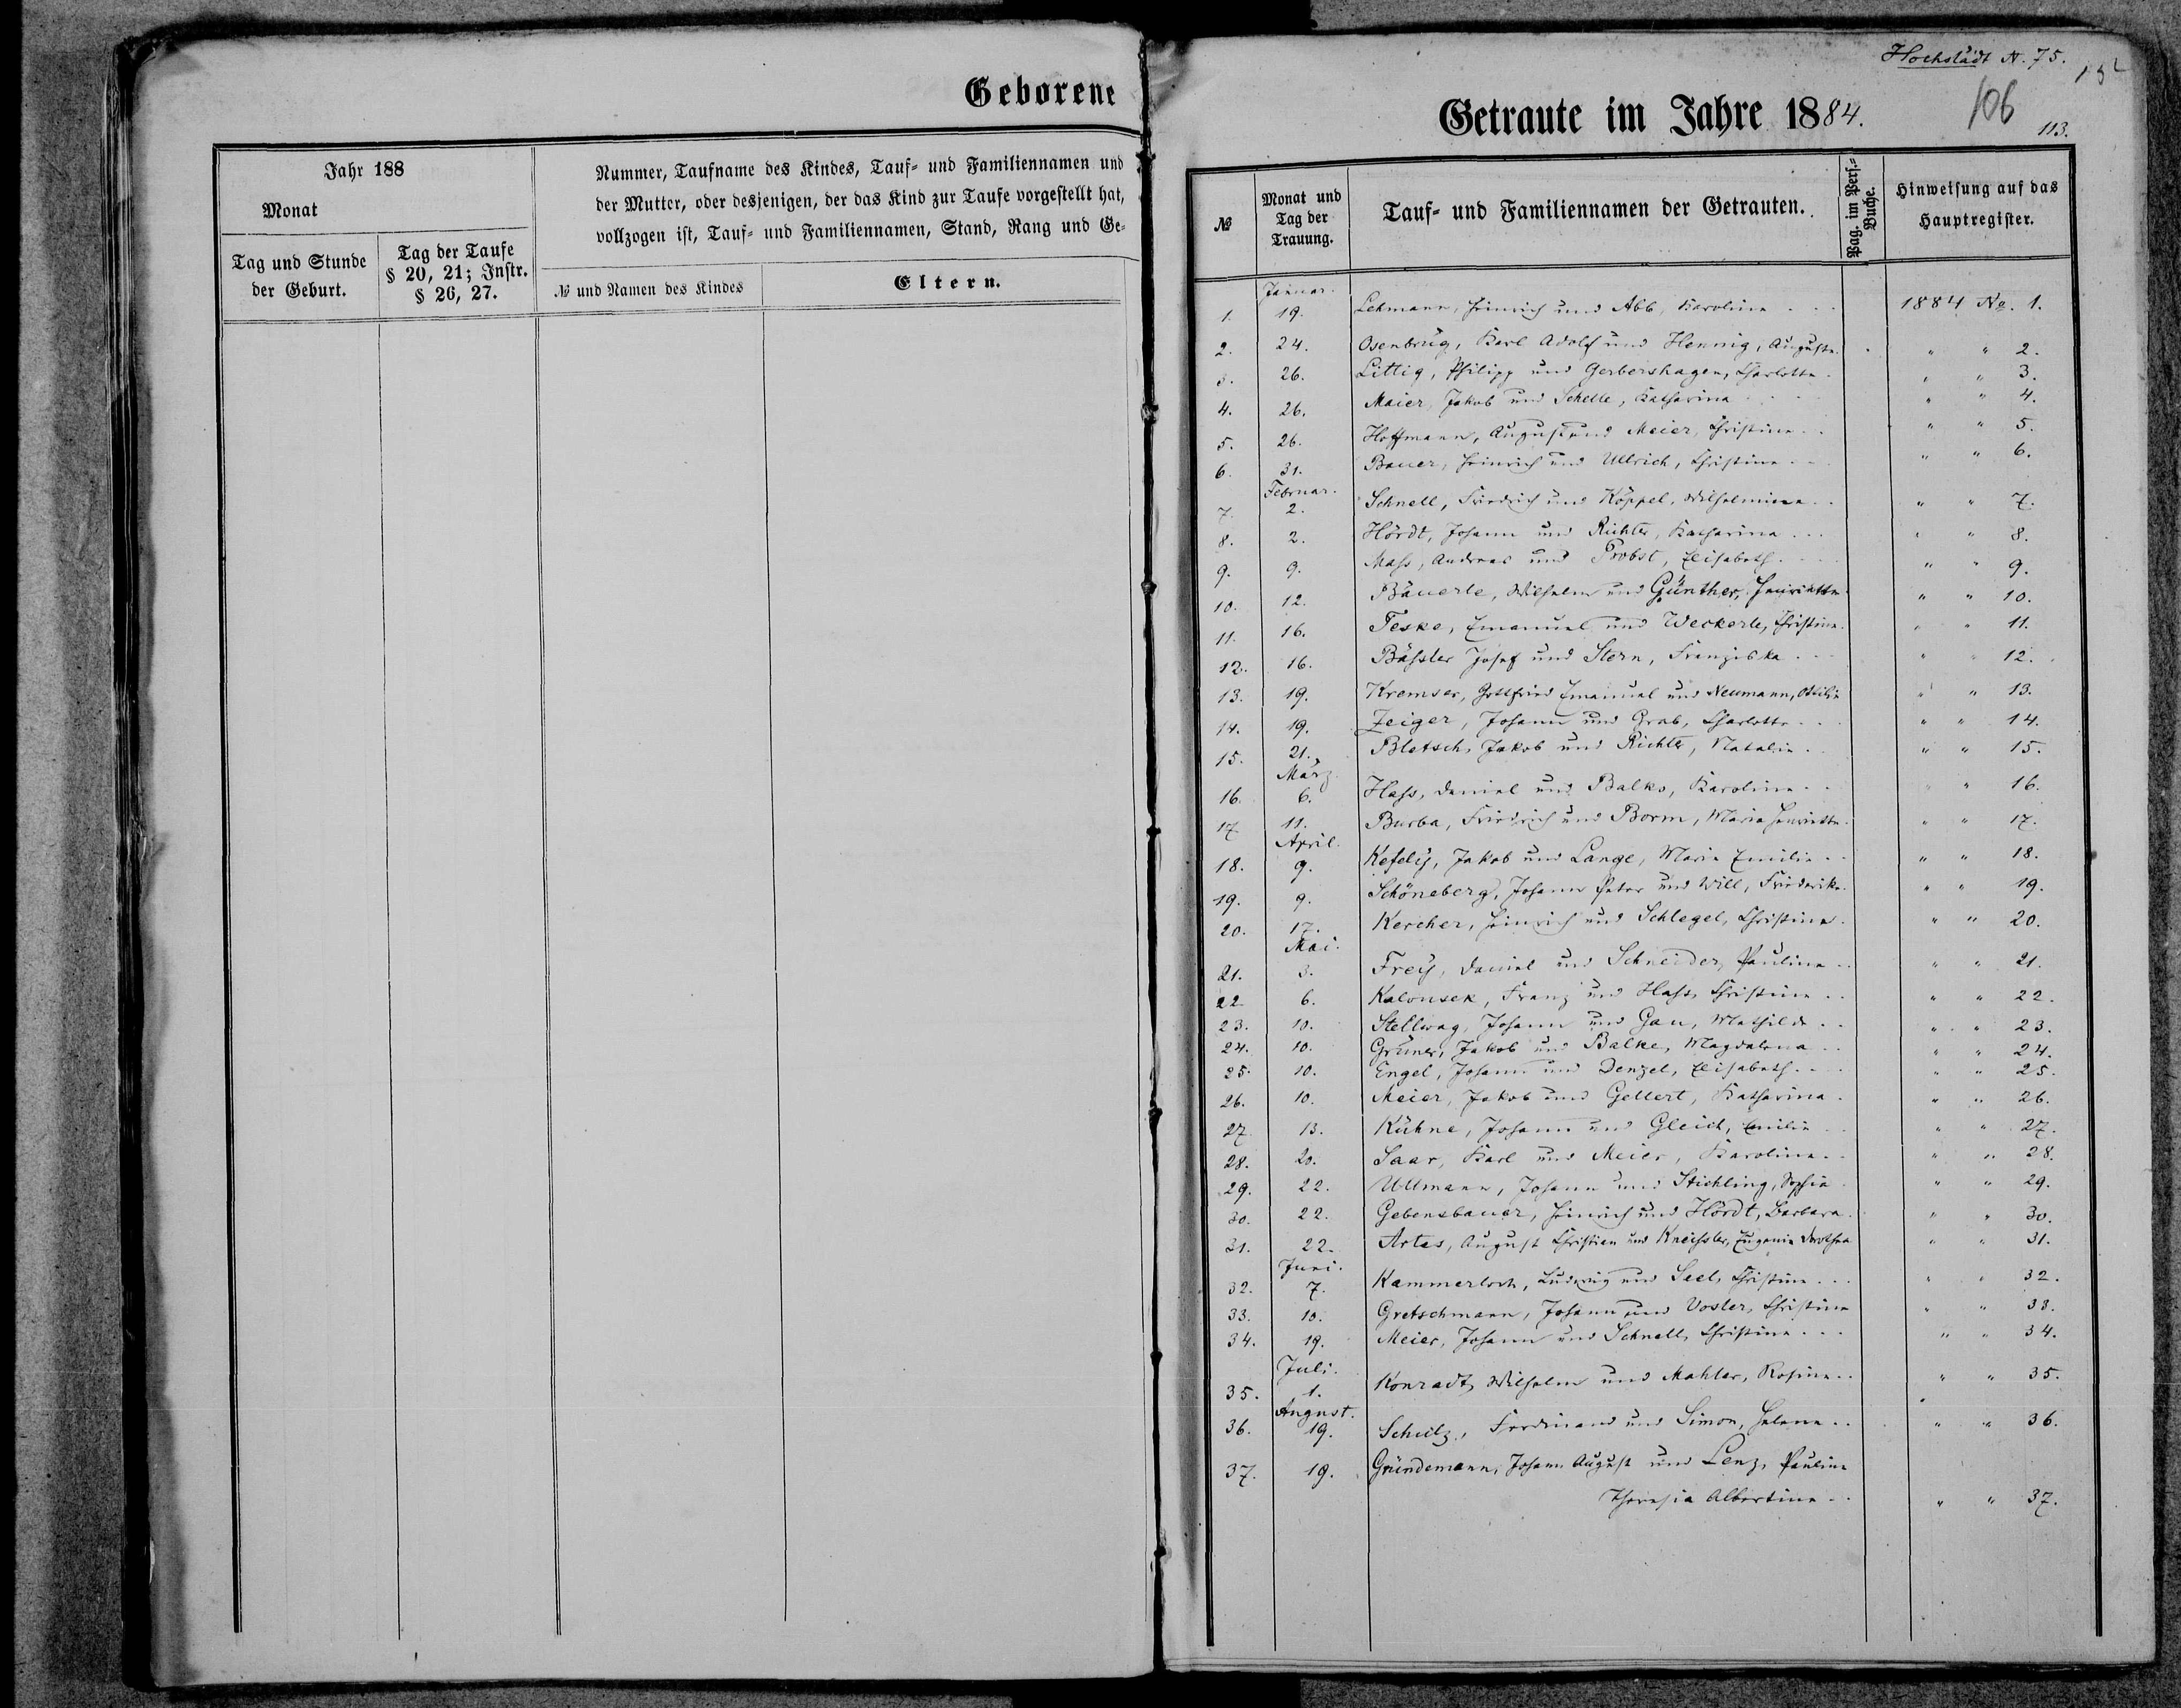 Geborene
Jahr 188
Monat
Tag und Stunde der Geburt.
Tag der Taufe § 20, 21; Instr. § 26, 27.
Nummer, Taufname des Kindes, Tauf- und Familiennamen und
der Mutter, oder desjenigen, der das Kind zur Taufe vorgestellt hat,
vollzogen ist, Tauf- und Familiennamen, Stand, Rang und Ge-
№ und Namen des Kindes
Eltern.
Hochstädt N. 75.
106
113.
Getraute im Jahre 1884.
№
Monat und Tag der Trauung.
Tauf- und Familiennamen der Getrauten.
Pag. im Pers.-Buche.
Hinweisung auf das Hauptregister.
Januar.
1. 19. Lehmann, Heinrich und Abb, Karoline . . . 1884 No. 1.
2. 24. Osenbrüg, Karl Adolf und Hennig, Auguste. " " 2.
3. 26. Littig, Philipp und Gerbershagen, Charlotte. " " 3.
4. 26. Maier, Jakob und Schelle, Katharina . . . " " 4.
5. 26. Hoffmann, August und Meier, Christine . . " " 5.
6. 31. Bauer, Heinrich und Ullrich, Christine . . " " 6.
Februar.
7. 2. Schnell, Friedrich und Köppel, Wilhelmine . . " " 7.
8. 2. Hördt, Johann und Richter, Katharina . . . " " 8.
9. 9. Mass, Andreas und Probst, Elisabeth . . . " " 9.
10. 12. Bäuerle, Wilhelm und Günther, Henriette " " 10.
11. 16. Teske, Emanuel und Weckerle, Christine. " " 11.
12. 16. Bässler Josef und Stern, Franziska . . . " " 12.
13. 19. Kremser, Gottfried Emanuel und Neumann, Ottilie " " 13.
14. 19. Zeiger, Johann und Grab, Charlotte . . . " " 14.
15. 21. Bletsch, Jakob und Richter, Natalie . . . " " 15.
März
16. 6. Hass, Daniel und Balko, Karoline . . " " 16.
17 11. Burba, Friedrich und Borm, Maria Henriette. " " 17.
April.
18. 9. Kefely, Jakob und Lange, Marie Emilie . . " " 18.
19. 9. Schöneberg, Johann Peter und Will, Friederike. " " 19.
20. 17. Kercher, Heinrich und Schlegel, Christine. " " 20.
Mai.
21. 3. Frey, Daniel und Schneider, Pauline . . " " 21.
22. 6. Kalousek, Franz und Hass, Christine . . " " 22.
23. 10. Stellwag, Johann und Gau, Mathilde . . " " 23.
24. 10. Grüner, Jakob und Balke, Magdalena . . " " 24.
25. 10. Engel, Johann und Denzel, Elisabeth . . . " " 25.
26. 10. Meier, Jakob und Gellert, Katharina . " " 26.
27 13. Kühne, Johann und Gleich, Emilie . . " " 27.
28. 20. Saar, Karl und Meier, Karoline . . " " 28.
29. 22. Ullmann, Johann und Stichling, Sophia . " " 29.
30. 22. Gebensbauer, Heinrich und Hördt, Barbara. " " 30.
31. 22. Artes, August Christian und Kneissler, Eugenie Dorothea " " 31.
Juni.
32. 7. Kammerloch, Ludwig und Seel, Christine . . . " " 32.
33. 10. Gretschmann, Johann und Vosler, Christine " " 33.
34. 19. Meier, Johann und Schnell, Christine . . . " " 34.
Juli.
35. 1. Konradt, Wilhelm und Mahler, Rosine . . " " 35.
August.
36. 19. Schulz, Ferdinand und Simon, Helene . . " " 36.
37. 19. Gründemann, Johann August und Lenz, Pauline
Theresia Albertine . . " " 37.